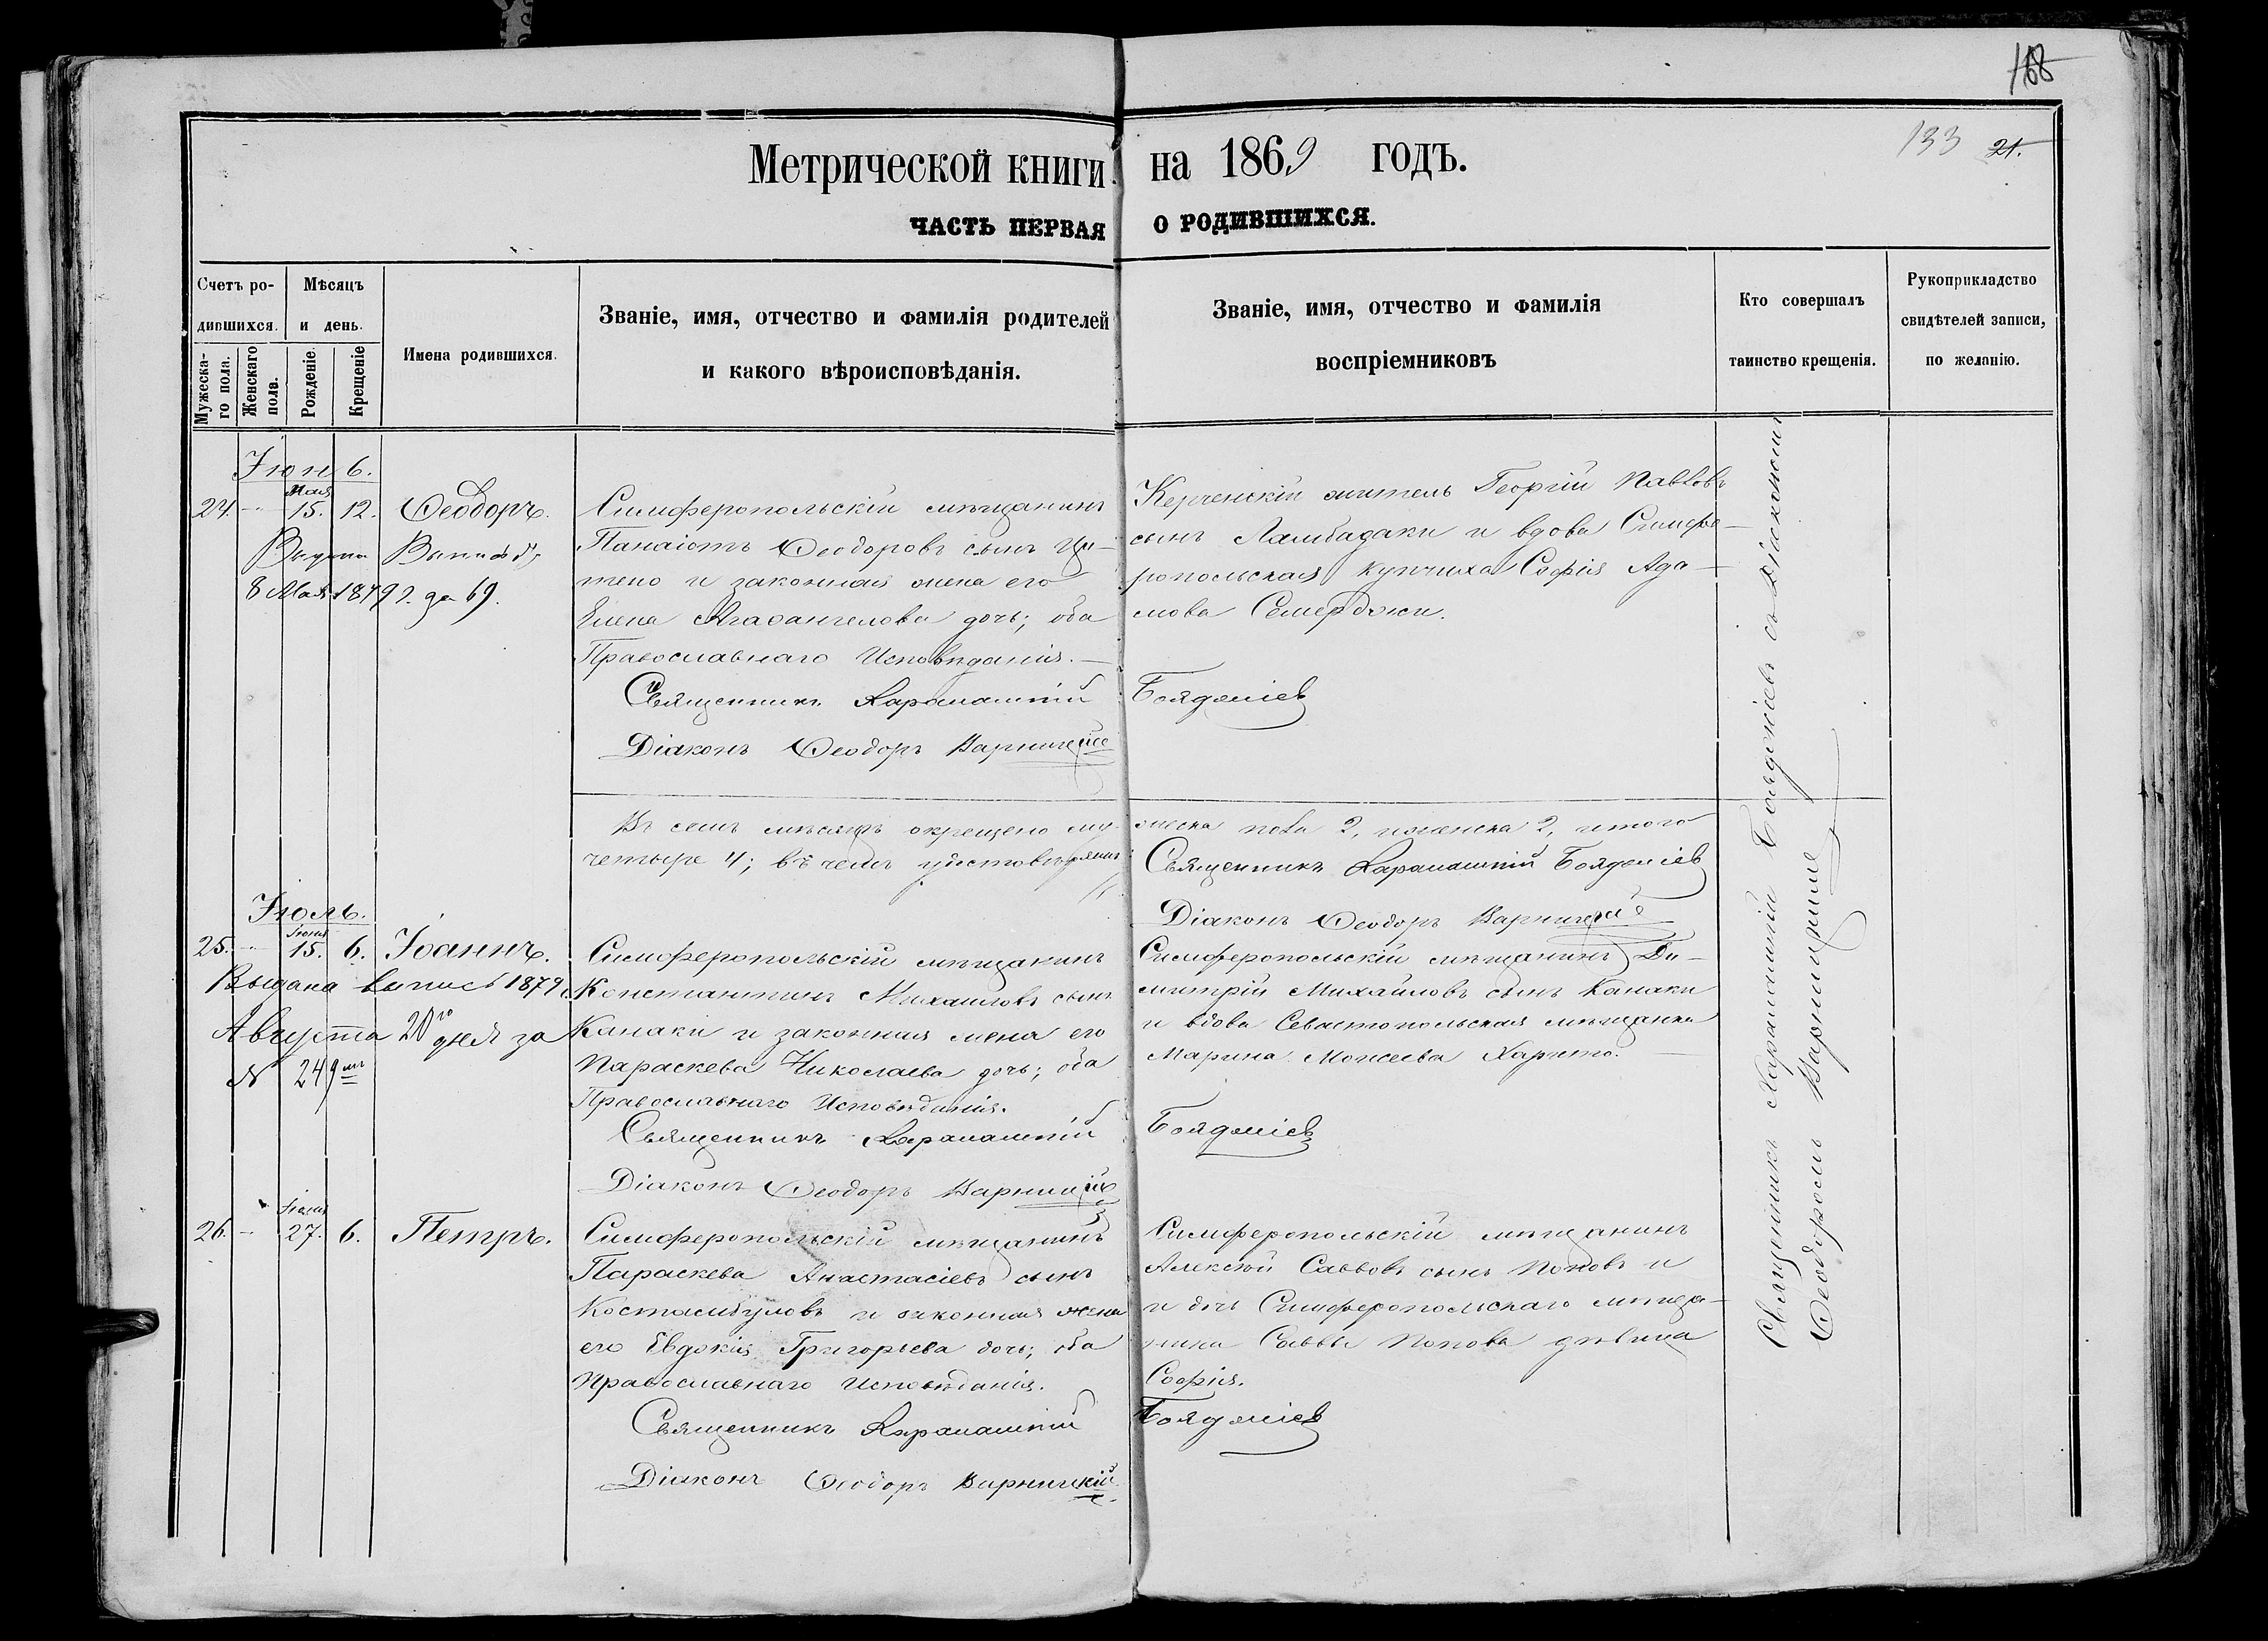 168
133 21.
Метрической книги на 1869 годъ.
ЧАСТЬ ПЕРВАЯ О РОДИВШИХСЯ.
Счетъ родившихся.
Мужескаго пола.
Женскаго пола.
Мѣсяцъ и день.
Рожденіе.
Крещеніе
Имена родившихся.
Званіе, имя, отчество и фамилія родителей
и какого вѣроисповѣданія.
Званіе, имя, отчество и фамилія
воспріемниковъ
Кто совершалъ
таинство крещенія.
Рукоприкладство
свидѣтелей записи,
по желанію.
Іюнь
24. -- Мая 15. 12. Ѳеодоръ.
8 Мая 1879 г. за 69.
Симферопольскій мѣщанинъ
Панаіотъ Ѳеодоровъ сынъ
и законная жена его
Елена Агаѳангелова дочь; оба
Православнаго Исповѣданія. —
Священникъ Харлампій Бояджіевъ
Діаконъ Ѳеодоръ Варницкій
Керченскій житель Георгій Павловъ
сынъ Ламбадаки и вдова Симфе-
ропольская купчиха Софія Ада-
мова Семерджи.
Въ семъ мѣсяцѣ окрещено мужеска пола 2, и женска 2, итого
четыре 4; въ чемъ удостовѣряемъ
Священникъ Харлампій Бояджіевъ
Діаконъ Ѳеодоръ Варницкій
Іюль.
25. -- Іюня 15. 6. Іоаннъ.
Выдана выпись 1879
Августа 20го дня за
№ 249
Симферопольскій мѣщанинъ
Константинъ Михаиловъ сынъ
Канаки и законная жена его
Параскева Николаева дочь; оба
Православнаго Исповѣданія.
Священникъ Харлампій Бояджіевъ
Діаконъ Ѳеодоръ Варницкій
Симферопольскій мѣщанинъ Ди-
митрій Михайловъ сынъ Канаки
и вдова Севастопольская мѣщанка
Марина Моисеева Харито. —
26. -- 27. 6. Петръ.
Симферопольскій мѣщанинъ
Параскева Анастасіевъ сынъ
Костамбуловъ и законная жена
его Евдокія Григорьева дочь; оба
Православнаго Исповѣданія.
Священникъ Харлампій Бояджіевъ
Діаконъ Ѳеодоръ Варницкій
Симферопольскій мѣщанинъ
Алексѣй Саввовъ сынъ Поповъ и
и дочь Симферопольскаго мѣща-
нина Саввы Попова дѣвица
Софія.
Священникъ Харлампій Бояджіевъ съ Діакономъ
Ѳеодоромъ Варницкимъ